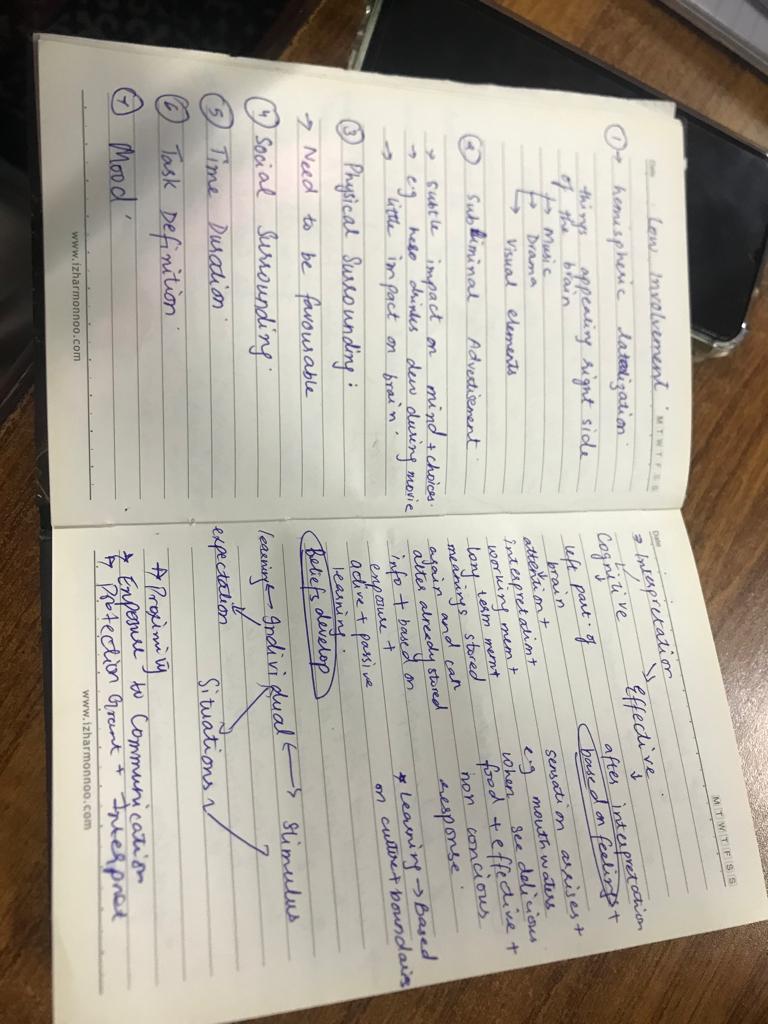 Date Low Involvement M T W T F S S
① → hemispheric latealization
things appealing right side
of the brain
→ Music
→ Drama
→ Visual elements
② Subliminal Advertisement
→ subtle impact on mind + choices.
→ e.g hero drinks dew during movie
→ little impact on brain.
③ Physical Surrounding :
→ Need to be favourable
④ Social Surrounding.
⑤ Time Duration
⑥ Task Definition
⑦ Mood
www.izharmonnoo.com
M T W T F S S
Date
⇒ Interpretation
Cognitive
left part of
brain
attention +
interpretation +
working mem +
long term mem +
meanings stored
again and can
alter already stored
info + based on
exposure +
active + passive
learning.
Beliefs develop
Effective
after interpretation
based on feelings +
sensation arises +
e.g mouth waters
when see delicious
food + effective +
non concious
response.
* Learning → Based
on culture + boundaries
learning ← Individual ↔ Stimulus
expectation
Situations
→ Proximity
→ Exposure to Communication
→ Protection Grant + Interpret
www.izharmonnoo.com